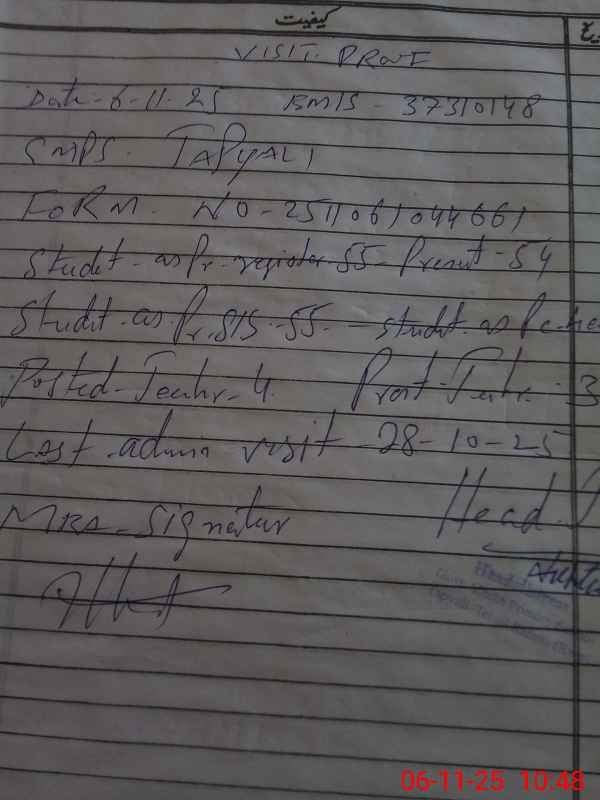 کیفیت
VISIT. PROVE
Date - 6-11-25 EMIS - 37310148
GMPS. TAPYALI
FORM. NO - 2511061044661
Studet - as Pr - register 55 - Present - 54
Studet - as. Pr. SIS - 55. - studet. as Pr
Posted - Teahr - 4. Prest - Teahr - 3
Last - admin visit 28-10-25
MEA - Signatur Head.
06-11-25 10:48